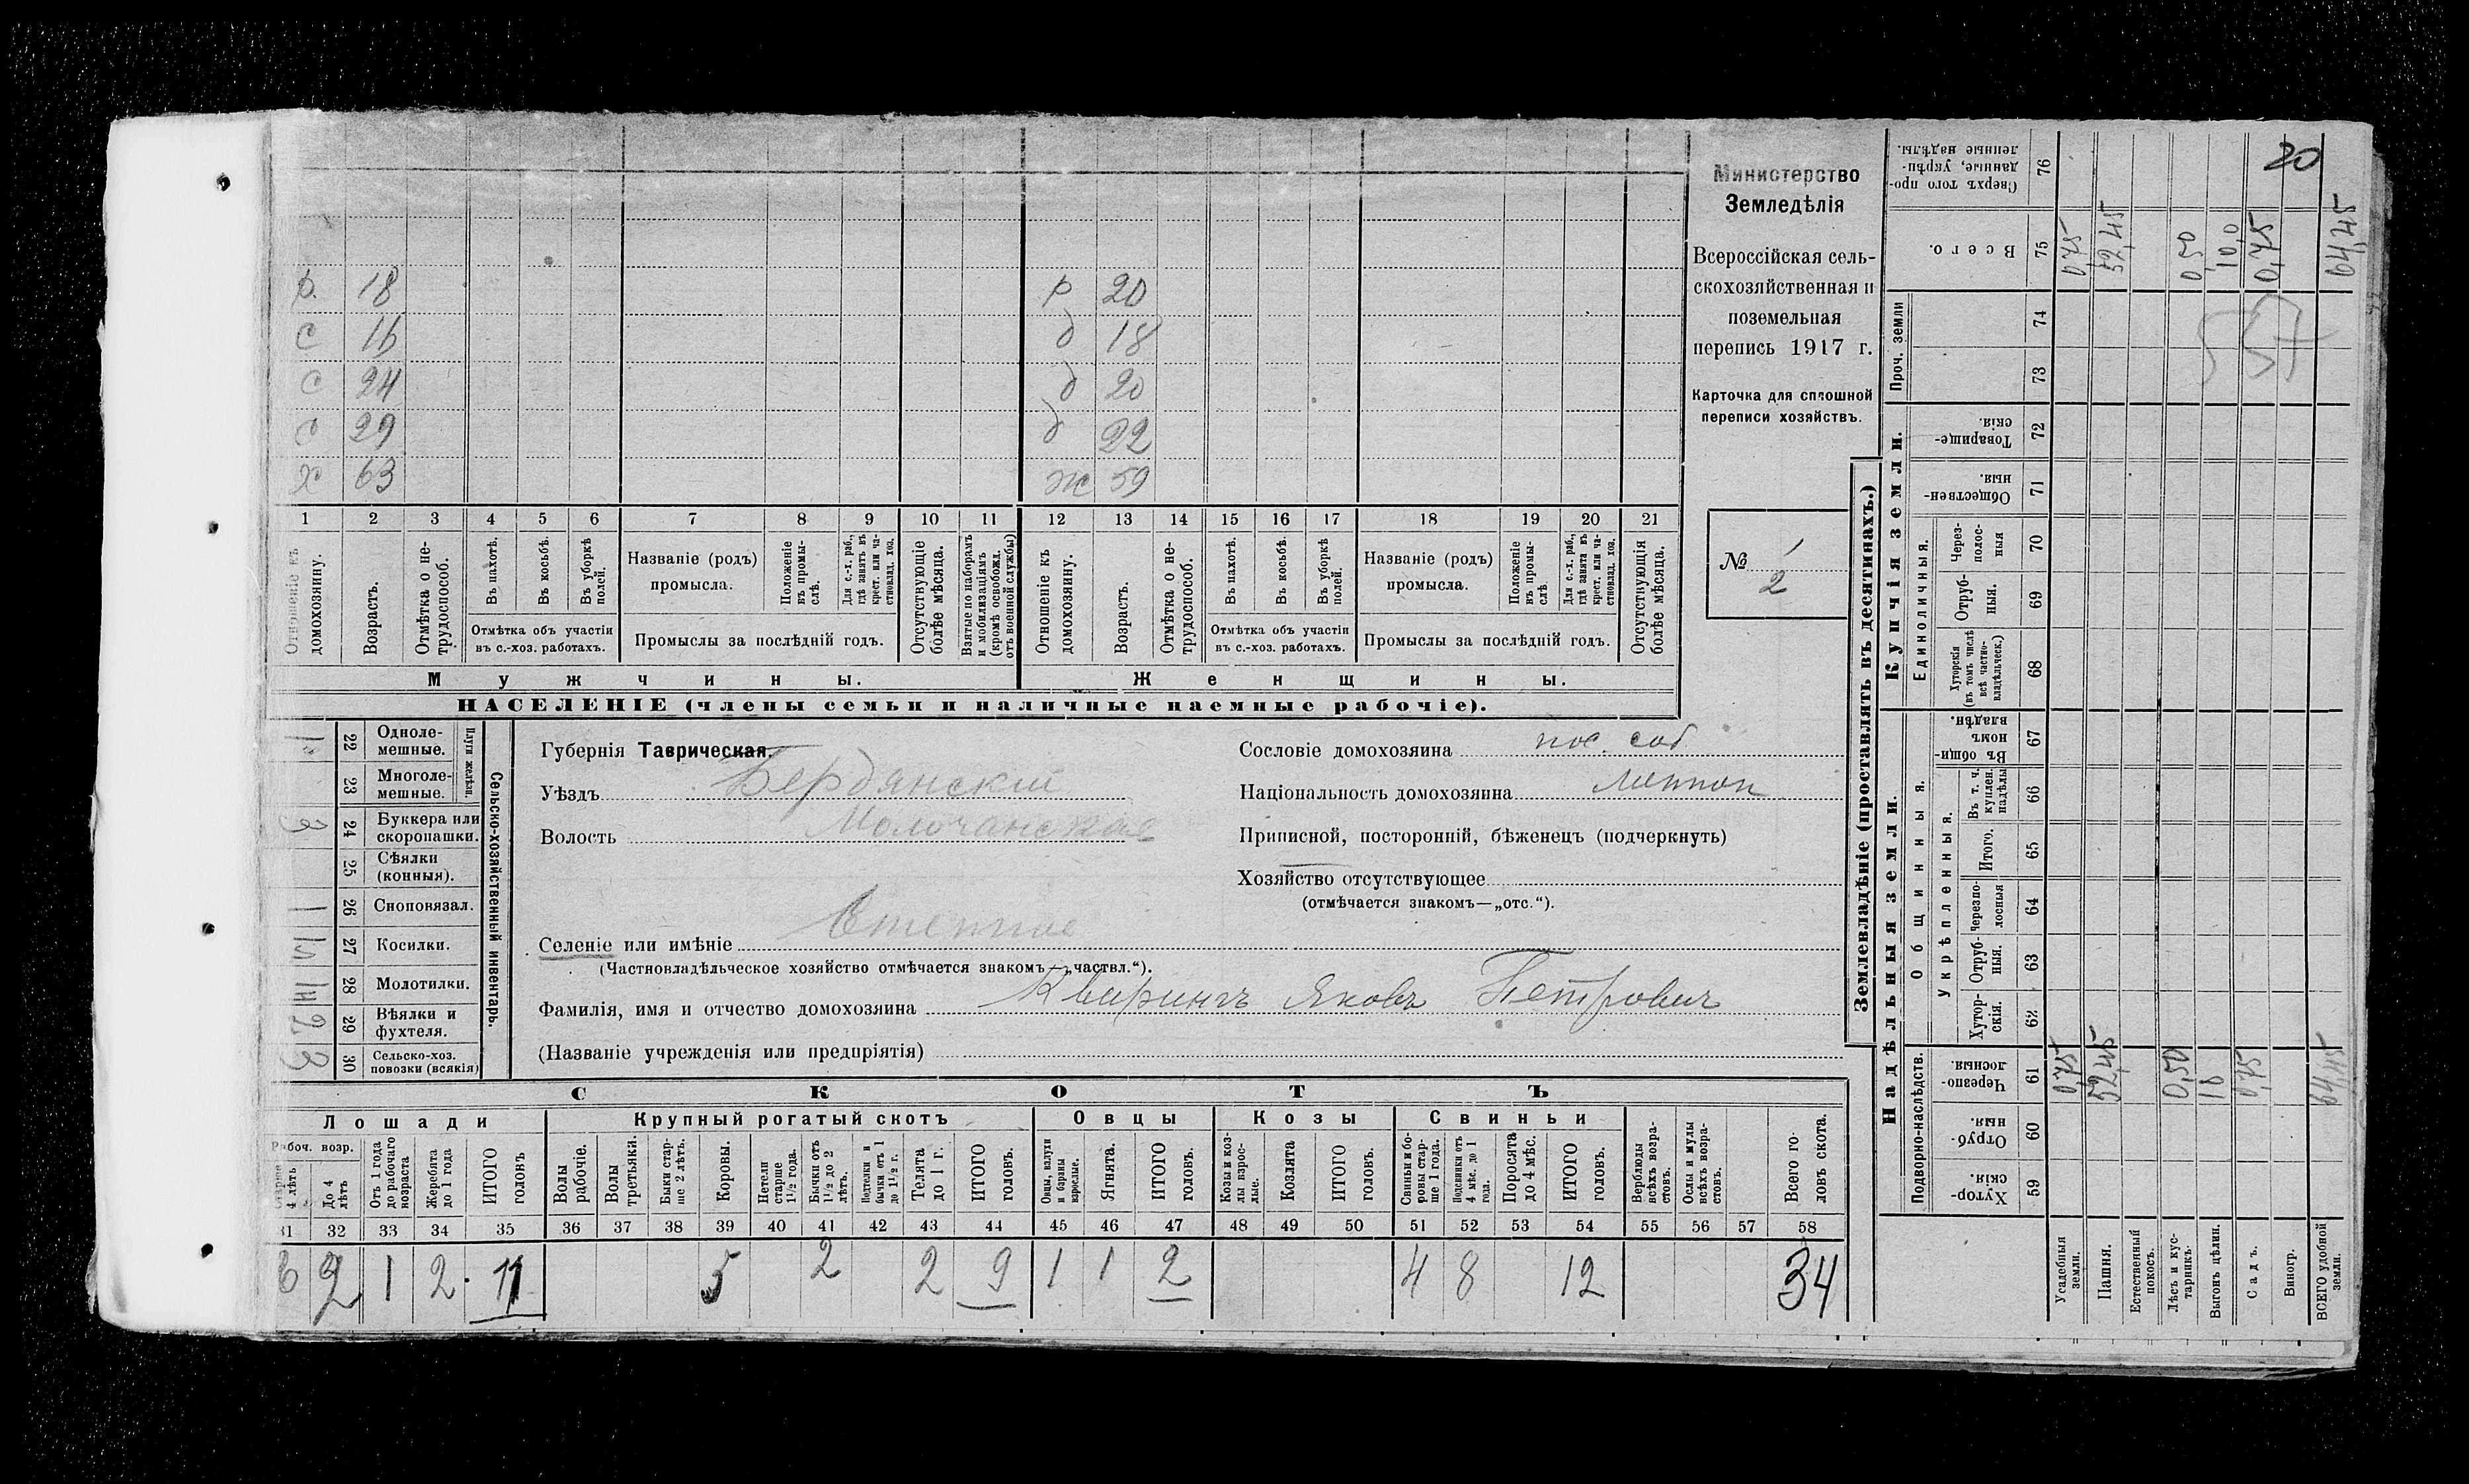 20
Министерство
Земледѣлія
Всероссійская сель-
скохозяйственная и
поземельная
перепись 1917 г.
Карточка для сплошной
переписи хозяйствъ.
№ 1
2
р. 18 р 20
с 16 д 18
с 24 д 20
с 29 д 22
х 63 ж 59
1 2 3 4 5 6 7 8 9 10 11 12 13 14 15 16 17 18 19 20 21
Отношеніе къ домохозяину.
Возрастъ.
Отмѣтка о не-трудоспособ.
Въ пахотѣ.
Въ косьбѣ.
Въ уборкѣ полей.
Отмѣтка объ участіи
въ с.-хоз. работахъ.
Названіе (родъ)
промысла.
Положеніе въ промы-слѣ.
Для с.-х. раб., гдѣ занятъ въ крест. или ча-стновлад. хоз.
Промыслы за послѣдній годъ.
Отсутствующіе болѣе мѣсяца.
Взятые по наборамъ и мобилизаціямъ (кромѣ освобожд. отъ военной службы)
Отношеніе къ домохозяину.
Возрастъ.
Отмѣтка о не-трудоспособ.
Въ пахотѣ.
Въ косьбѣ.
Въ уборкѣ полей.
Отмѣтка объ участіи
въ с.-хоз. работахъ.
Названіе (родъ)
промысла.
Положеніе въ промы-слѣ.
Для с.-х. раб., гдѣ занятъ въ крест. или ча-стновлад. хоз.
Промыслы за послѣдній годъ.
Отсутствующія болѣе мѣсяца.
Мужчины. Женщины.
НАСЕЛЕНІЕ (члены семьи и наличные наемные рабочіе).
Сельско-хозяйственный инвентарь.
Плуги желѣзн.
22 Одноле-мешные. 1
23 Многоле-мешные.
24 Буккера или скоропашки. 3
25 Сѣялки (конныя).
26 Сноповязал. 1
27 Косилки.
28 Молотилки.
29 Вѣялки и фухтеля. 2
30 Сельско-хоз. повозки (всякія) 3
Губернія Таврическая.
Уѣздъ Бердянскій
Волость Молочанская
Селеніе или имѣніе Степное
(Частновладѣльческое хозяйство отмѣчается знакомъ—„частвл.“).
Фамилія, имя и отчество домохозяина Квирингъ Яковъ Петровичъ
(Названіе учрежденія или предпріятія)
Сословіе домохозяина пос. соб
Національность домохозяина
Приписной, посторонній, бѣженецъ (подчеркнуть)
Хозяйство отсутствующее
(отмѣчается знакомъ—„отс.“).
СКОТЪ
Лошади Крупный рогатый скотъ Овцы Козы Свиньи
Рабоч. возр.
4 лѣтъ
До 4 лѣтъ
Отъ 1 года до рабочаго возраста
Жеребята до 1 года
ИТОГО головъ
Волы рабочіе.
Волы третьяки.
Быки стар-ше 2 лѣтъ.
Коровы.
Нетели старше 1½ года.
Бычки отъ 1½ до 2 лѣтъ.
Подтелки и бычки отъ 1 до 1½ г.
Телята до 1 г.
ИТОГО головъ.
Овцы, валухи и бараны взрослые.
Ягнята.
ИТОГО головъ.
Козы и коз-лы взрос-лые.
Козлята
ИТОГО головъ.
Свиньи и бо-ровы стар-ше 1 года.
Подсвинки отъ 4 мѣс. до 1 года.
Поросята до 4 мѣс.
ИТОГО головъ.
Верблюды всѣхъ возра-стовъ.
Ослы и мулы всѣхъ возра-стовъ.
Всего го-ловъ скота.
31 32 33 34 35 36 37 38 39 40 41 42 43 44 45 46 47 48 49 50 51 52 53 54 55 56 57 58
6 2 1 2 11 5 2 2 9 1 1 2 4 8 12 34
Землевладѣніе (проставлять въ десятинахъ.)
Надѣльныя земли. Купчія земли. Проч. земли
Подворно-наслѣдств.
Общинныя.
Укрѣпленныя.
Единоличныя.
Хутор-скія. 59
Отруб-ныя. 60
Черезпо-лосныя. 61
Хутор-скія. 62
Отруб-ныя. 63
Черезпо-лосныя 64
Итого. 65
Въ т. ч. куплен. надѣлы 66
Въ общи-номъ владѣн. 67
Хуторскія (въ томъ числѣ всѣ частно-владѣльческ.) 68
Отруб-ныя. 69
Через-полос-ныя 70
Обществен-ныя. 71
Товарище-скія. 72
73
74
Всего. 75
Сверхъ того про-данные, укрѣп-ленные надѣлы. 76
Усадебныя земли. 0,75 0,75
Пашня. 52,45 52,45
Естественный покосъ.
Лѣсъ и кус-тарникъ. 0,50 0,50
Выгонъ цѣлин. 10,0
Садъ. 0,75 0,75
Виногр.
ВСЕГО удобной земли. 64,45 64,45
557